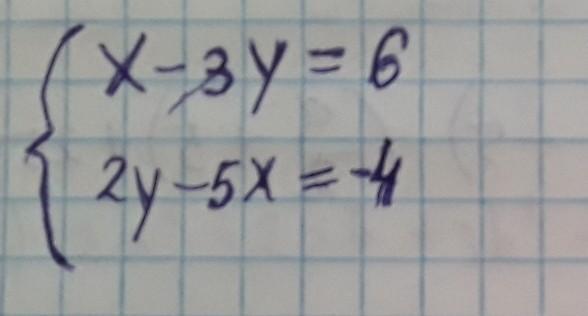 x-3y=6
2y-5x=-4